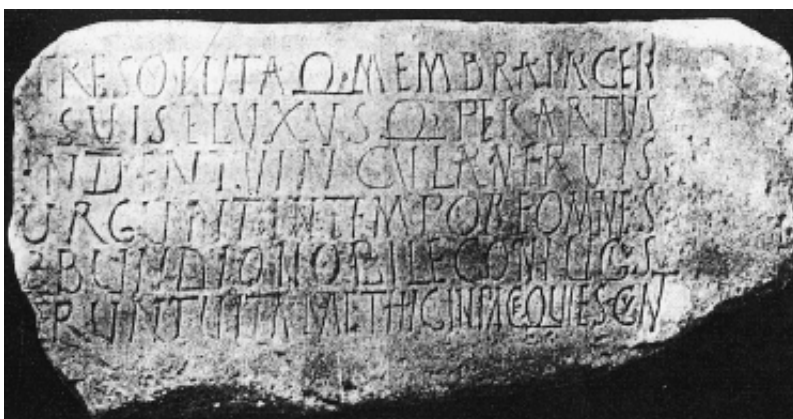 RESOLUTA Q; MEMBRA IACEN
SUIS ELUXUS Q; PER ARTUS
NDENT UINCULA NERUIS
URGENT IN TEMPORE OMNES
BUNDIO NOBILE
ERUNT UITAM ET HIC IN PACE QUIESCUN